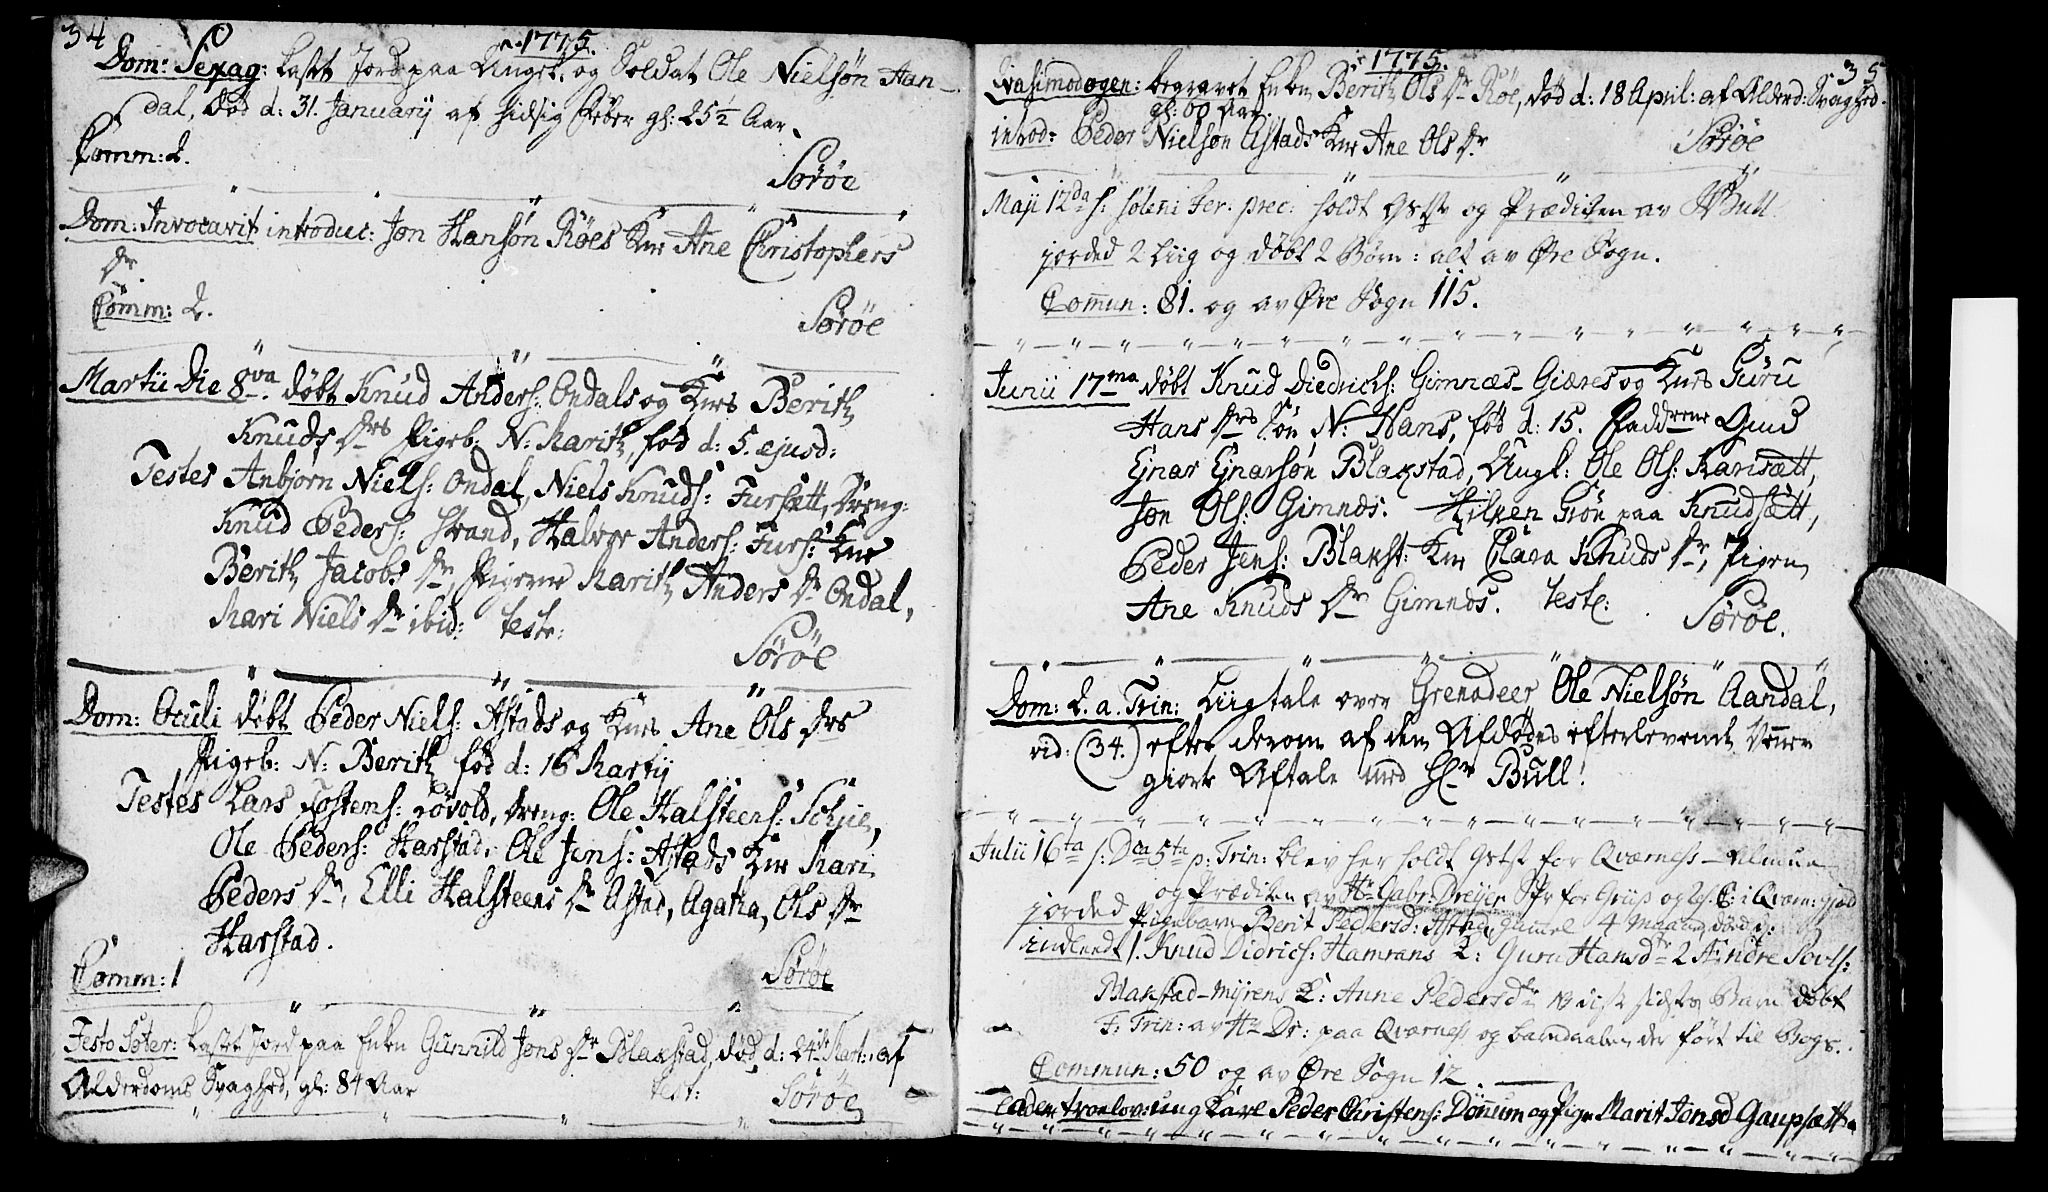 34
1775.
Dom: Sexag: Kastet Jord paa Ungk. og Soldat Ole Nielsøn Aan-
dal, død d: 31. Januarij af hidsig Feber gl: 25½ Aar.
Comm: 2.
Sørøe
Dom: Invocavit introduc: Jon Hansøn Røes Kne Ane Christophers
Dr.
Comm: 2.
Sørøe
Martii Die 8va. døbt Knud Anders: Ondals og Knes Berith
Knuds Drs Pigeb: N: Marith, fød d: 5. ejusd:
Testes Anbjørn Niels: Ondal, Niels Knuds: Fursætt, Dreng:
Knud Peders: Strand, Halvor Anders: Furs: Kne
Berith Jacobs Dr, Pigerne Marith Anders Dr Ondal,
Mari Niels Dr ibid: test:
Sørøe
Dom: Oculi døbt Peder Niels: Astads og Knes Ane Ols Drs
Pigeb: N: Berith fød d: 16 Martij
Testes Lars Tostens: Løvold, Dreng: Ole Halsteens: Schjie,
Ole Peders: Harstad, Ole Jens: Astads Kne Mari
Peders Dr, Elli Halsteens Dr Astad, Agatha Ols Dr
Harstad.
Comm: 1
Sørøe
Festo Pøter: Kastet Jord paa Enken Gunnild Jons Dr Blakstad, død d: 24de Mart: af
Alderdoms Svaghed, gl: 84 Aar
test: Sørøe
1775.
35
Qvasimodogen: begravet Enken Berith Ols Dr Røe, død d: 18 April: af Alderd: Svaghed.
gl: 60 Aar.
introd: Peder Nielsøn Astads Kne Ane Ols Dr
Sørøe
Maji 12da s: soleni Fer: prec: holdt Gstr og Prædiken av Bull
jorded 2 Liig og døbt 2 Børn: alt av Øre Sogn.
Comun: 81. og av Øre Sogn 115.
Junii 17ma døbt Knud Diedrichs: Gimnæs-Giæres og Knes Guru
Hans Drs Søn N: Hans, fød d: 15. Fadderne Gmd
Ejnar Ejnarsøn Blakstad, Ungk: Ole Ols: Karisætt,
Jon Ols: Gimnes. Hilken Grøn paa Knudsætt,
Peder Jens: Blakst: Kne Clara Knuds Dr, Pigen
Ane Knuds Dr Gimnes. teste:
Sørøe.
Dom: 2. a. Trin: Liigtale over Grenadeer Ole Nielsøn Aandal,
vid: (34.) efter derom af den Afdødes efterlevende Venner
giort Aftale med Hr Bull!
Julii 16ta s: Dca 5ta p: Trin: blev her holdt Gstst for Qværness-Almue
og Prædiken av Hr Gabr: Dreyer Spr for Grip og C: i Qværn: Gield
jorded Pigebarn Berit Pedersd: Astad gamel 4 Maan: død d:
indleedt 1. Knud Didrichs: Hamrans K: Guru Hansdr 2 Andre Povls:
Blakstad-myrens K: Anne Pedersdr
F: Trin: av Hr Dr: paa Qværness og Barndaaben der ført til Bogs.
Commun: 50 og av Øre Sogn 12.
eader troelov: ung Karl Peder Christens: Dønum og Pige Marit Jonsd Gaupsætt